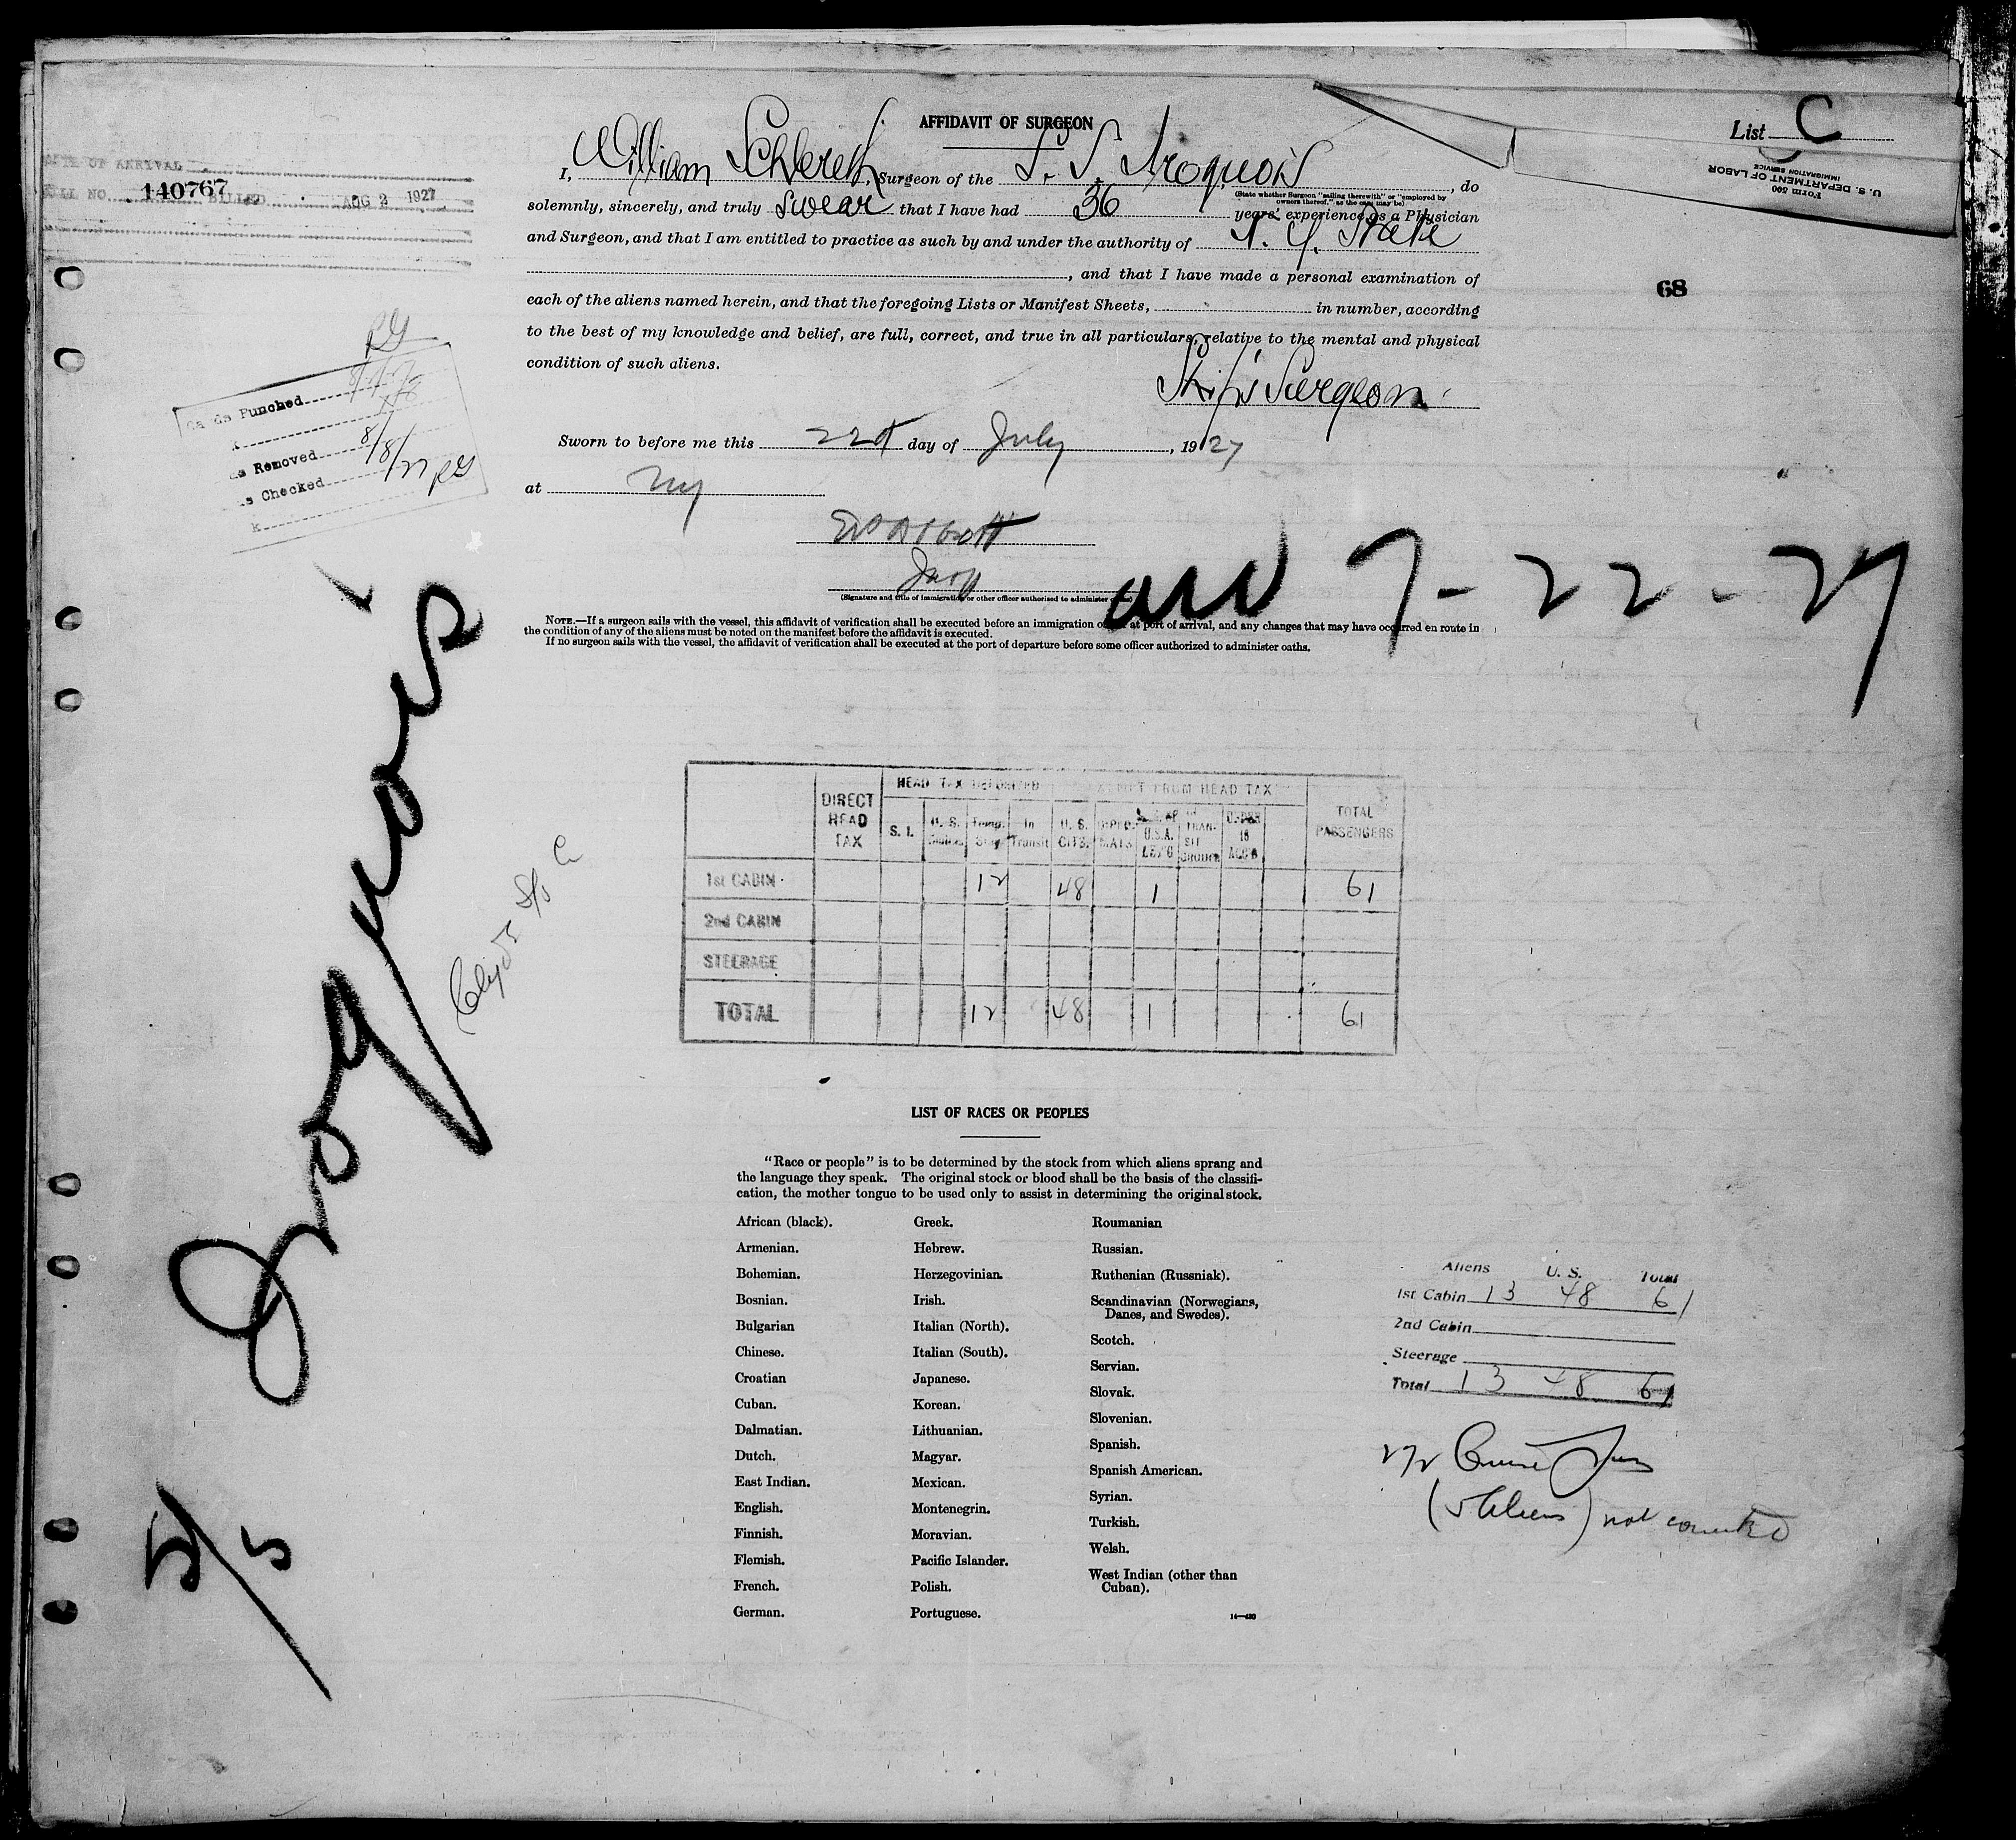 AFFIDAVIT OF SURGEON
List C
Form 500
U. S. DEPARTMENT OF LABOR
IMMIGRATION SERVICE
DATE OF ARRIVAL
BILL NO. 140767 BILLED AUG 2 1927
I, William Schlereth, Surgeon of the S. S. Iroquois, do
(State whether Surgeon "sailing therewith" or "employed by owners thereof," as the case may be)
solemnly, sincerely, and truly swear that I have had 36 years' experience as a Physician
and Surgeon, and that I am entitled to practice as such by and under the authority of N. Y. State
, and that I have made a personal examination of
each of the aliens named herein, and that the foregoing Lists or Manifest Sheets, in number, according
to the best of my knowledge and belief, are full, correct, and true in all particulars, relative to the mental and physical
condition of such aliens.
68
Ship's Surgeon
Cards Punched
s Removed 8/8/27
s Checked
k
Sworn to before me this 22d day of July, 1927
at NY
Insp
(Signature and title of immigration or other officer authorized to administer
arr 7-22-27
NOTE.—If a surgeon sails with the vessel, this affidavit of verification shall be executed before an immigration officer at port of arrival, and any changes that may have occurred en route in
the condition of any of the aliens must be noted on the manifest before the affidavit is executed.
If no surgeon sails with the vessel, the affidavit of verification shall be executed at the port of departure before some officer authorized to administer oaths.
Iroquois
5/5
DIRECT HEAD TAX
HEAD TAX DEPOSITED
EXEMPT FROM HEAD TAX
TOTAL PASSENGERS
S. I. Temp. Stay In Transit U. S. CITS. DIPLOMATS U.S.A.
1st CABIN 12 48 1 61
2nd CABIN
STEERAGE
TOTAL 12 48 1 61
LIST OF RACES OR PEOPLES
"Race or people" is to be determined by the stock from which aliens sprang and
the language they speak. The original stock or blood shall be the basis of the classifi-
cation, the mother tongue to be used only to assist in determining the original stock.
African (black).
Armenian.
Bohemian.
Bosnian.
Bulgarian
Chinese.
Croatian
Cuban.
Dalmatian.
Dutch.
East Indian.
English.
Finnish.
Flemish.
French.
German.
Greek.
Hebrew.
Herzegovinian.
Irish.
Italian (North).
Italian (South).
Japanese.
Korean.
Lithuanian.
Magyar.
Mexican.
Montenegrin.
Moravian.
Pacific Islander.
Polish.
Portuguese.
Roumanian
Russian.
Ruthenian (Russniak).
Scandinavian (Norwegians,
Danes, and Swedes).
Scotch.
Servian.
Slovak.
Slovenian.
Spanish.
Spanish American.
Syrian.
Turkish.
Welsh.
West Indian (other than
Cuban).
Aliens U. S. Total
1st Cabin 13 48 61
2nd Cabin
Steerage
Total 13 48 61
(5 Aliens) not counted